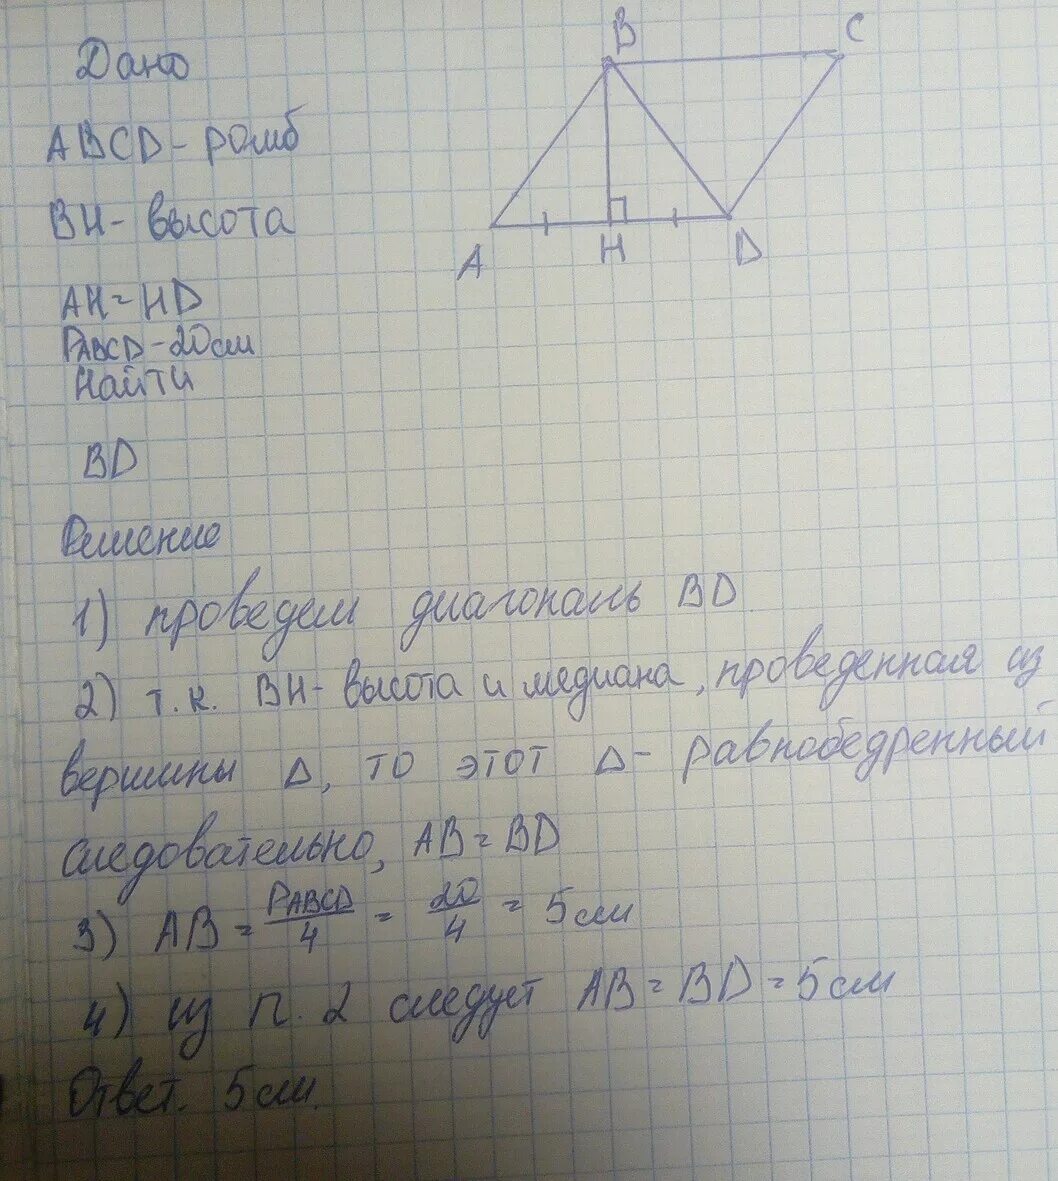 Дано
B
C
ABCD - ромб
BH - высота
A
H
D
AH = HD
PABCD - 20 см
Найти
BD
Решение
1) проведем диагональ BD
2) т.к. BH - высота и медиана, проведенная из
вершины Δ, то этот Δ - равнобедренный
следовательно, AB = BD
3) AB = PABCD/4 = 20/4 = 5 см
4) из п. 2 следует AB = BD = 5 см
Ответ. 5 см.